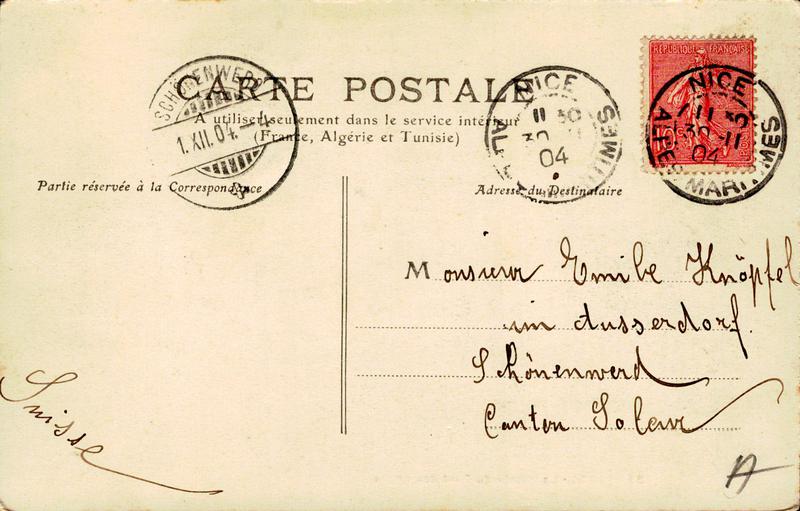 CARTE POSTALE
A utiliser seulement dans le service intérieur
(France, Algérie et Tunisie)
SCHÖNENWERD
1.XII.04.-4
NICE
11 30
30 11
04
ALPES MARITIMES
RÉPUBLIQUE FRANÇAISE
10c
NICE
11 3
30 -11
04
ALPES MARITIMES
Partie réservée à la Correspondance
Adresse du Destinataire
Monsieur Emile Knöpfel
im Ausserdorf.
Schönenwerd
Canton Soleur
Suisse
A